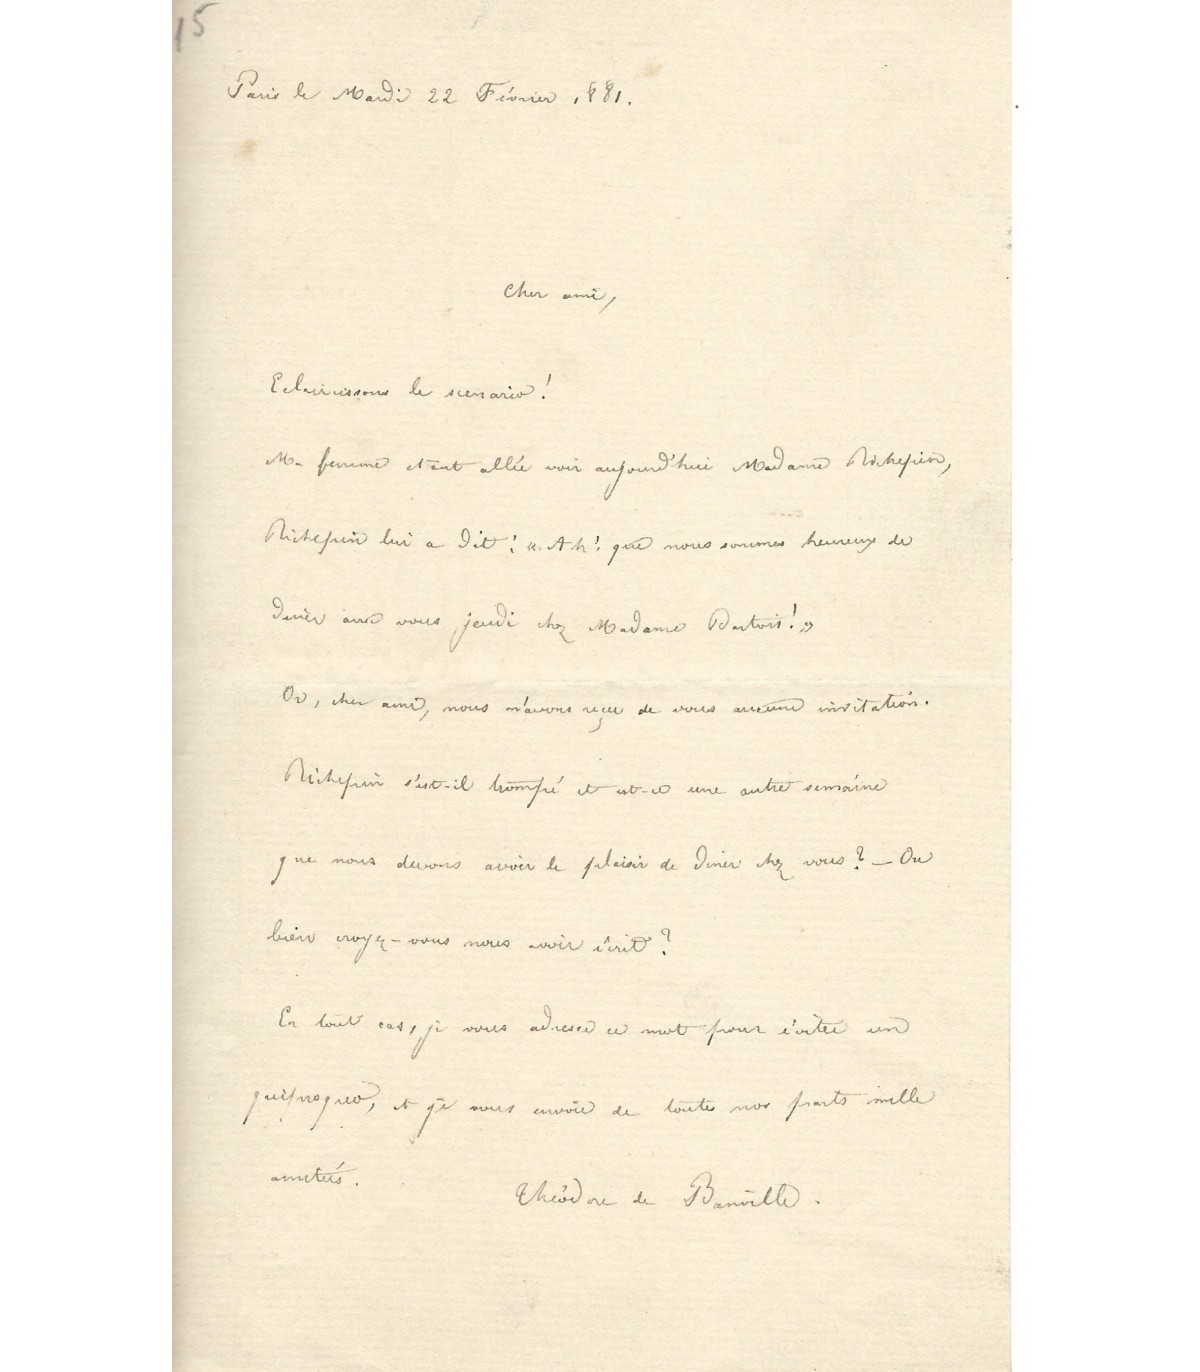 15
Paris le Mardi 22 Février 1881.
Cher ami,
Eclaircissons le scenario!
Ma femme étant allée voir aujourd'hui Madame Richepin,
Richepin lui a dit: « Ah! que nous sommes heureux de
dîner avec vous jeudi chez Madame !»
Or, cher ami, nous n'avons reçu de vous aucune invitation.
Richepin s'est-il trompé et est-ce une autre semaine
que nous devons avoir le plaisir de dîner chez vous? — Ou
bien croyez-vous nous avoir écrit?
En tout cas, je vous adresse ce mot pour éviter un
quiproquo, et je vous envoie de toutes nos parts mille
amitiés.
Théodore de Banville.